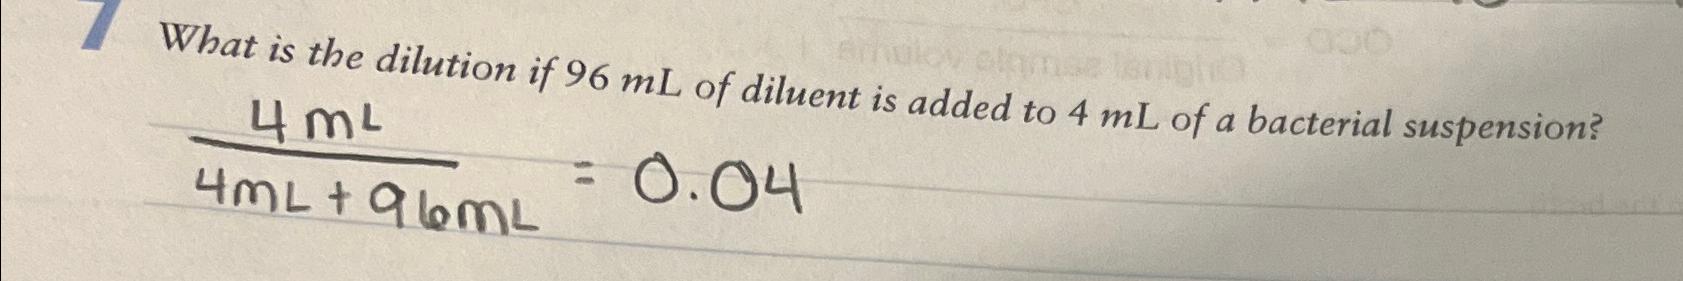 7 What is the dilution if 96 mL of diluent is added to 4 mL of a bacterial suspension?
4mL
4mL + 96mL = 0.04